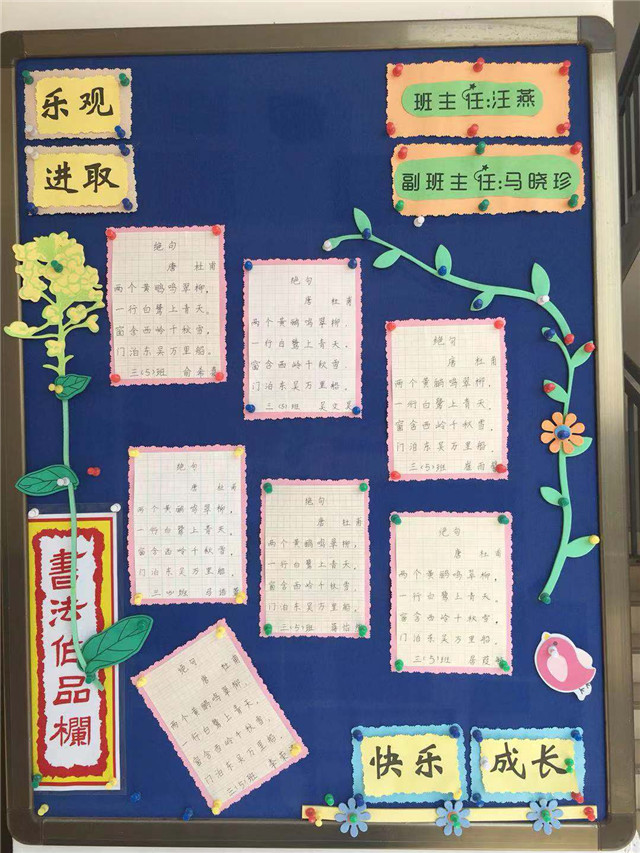 乐观
进取
班主任:汪燕
副班主任:马晓珍
绝句
唐 杜甫
两个黄鹂鸣翠柳,
一行白鹭上青天。
窗含西岭千秋雪,
门泊东吴万里船。
三(5)班
绝句
唐 杜甫
两个黄鹂鸣翠柳,
一行白鹭上青天。
窗含西岭千秋雪,
门泊东吴万里船。
三(5)班
绝句
唐 杜甫
两个黄鹂鸣翠柳,
一行白鹭上青天。
窗含西岭千秋雪,
门泊东吴万里船。
三(5)班
绝句
唐 杜甫
两个黄鹂鸣翠柳,
一行白鹭上青天。
窗含西岭千秋雪,
门泊东吴万里船。
绝句
唐 杜甫
两个黄鹂鸣翠柳,
一行白鹭上青天。
窗含西岭千秋雪,
门泊东吴万里船。
三(5)班
绝句
唐 杜甫
两个黄鹂鸣翠柳,
一行白鹭上青天。
窗含西岭千秋雪,
门泊东吴万里船。
三(5)班
书法作品欄
绝句
唐 杜甫
两个黄鹂鸣翠柳,
一行白鹭上青天。
窗含西岭千秋雪,
门泊东吴万里船。
三(5)班
快乐
成长